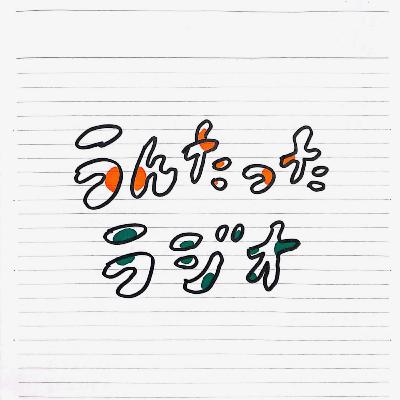 うんたった
ラジオ